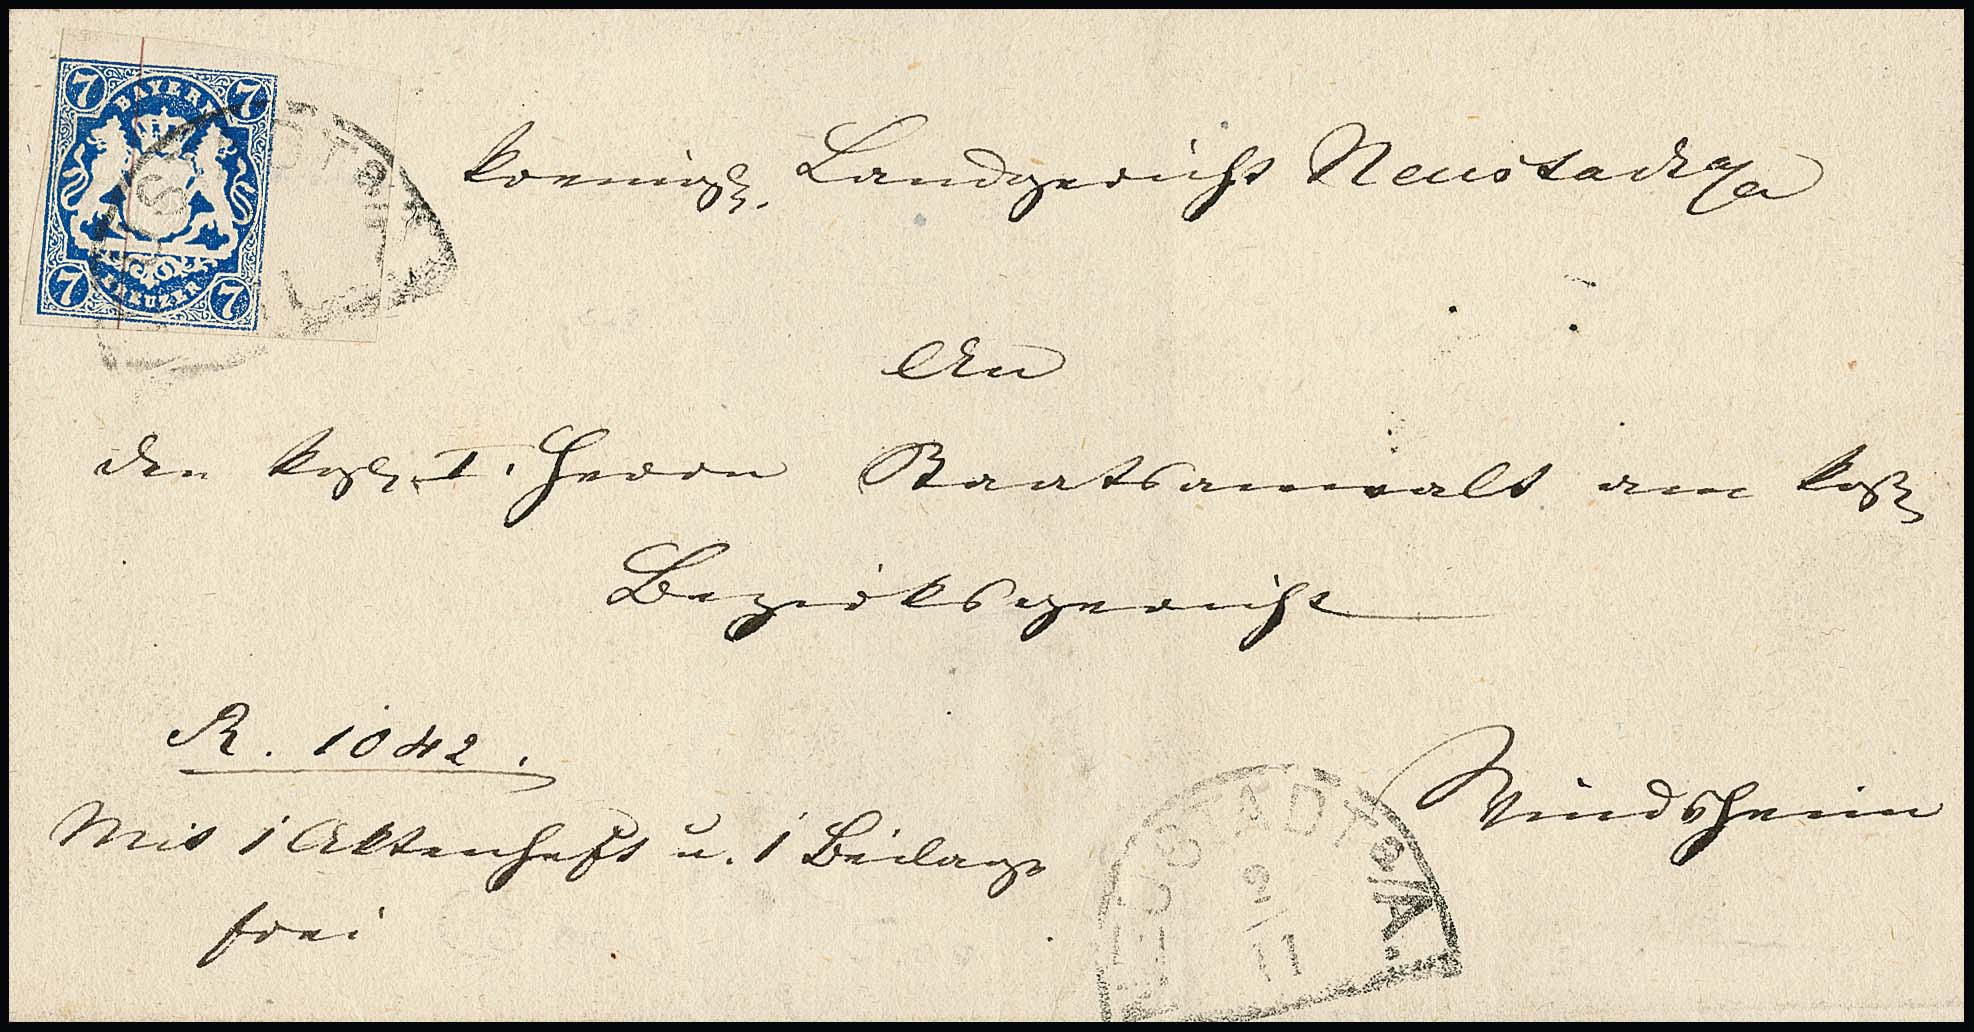 7 BAYERN 7
7 KREUZER 7
Koenigl. Landgericht Neustadt a/a
An
den kgl. I. Herrn Staatsanwalt am kgl.
Bezirksgericht
R. 1042.
Windsheim
Mit 1 Aktenheft u. 1 Beilage
frei
NEUSTADT a/A.
2/11